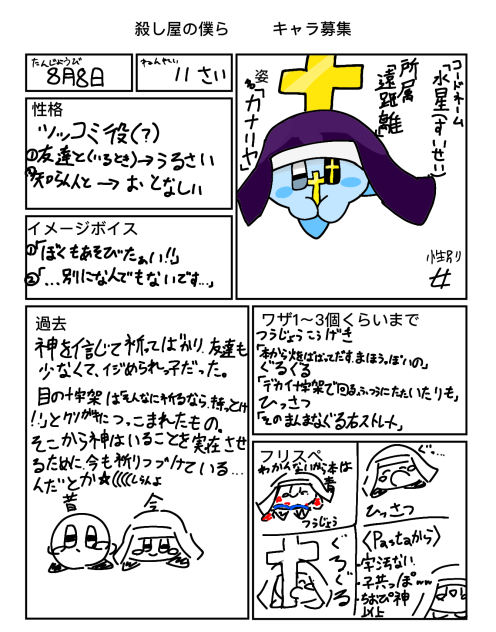 殺し屋の僕ら　　キャラ募集
たんじょうび
8月8日
ねんれい
11さい
コードネーム
「水星(すいせい)」
所属
「遠距離」
姿
名「カナリヤ」
性別
女
性格
ツッコミ役(?)
①友達と(いるとき)→うるさい
②知らん人と→おとなしい
イメージボイス
①「ぼくもあそびたぁい!!」
②「…別になんでもないです…」
過去
神を信じて祈ってばかり、友達も
少なくて、イジめられっ子だった。
目の十字架は「そんなに祈るなら、持っとけ
!!」とクソガキにつっこまれたもの。
そこから神はいることを実在させ
るために、今も祈りつづけている…
んだとか☆((((しらんよ
昔
今
ワザ1〜3個くらいまで
つうじょうこうげき
「本から炎ばばってだす、まほうっぽいの」
ぐるぐる
「デカイ十字架で回る、ふつうにたたいたりも」
ひっさつ
「そのまんまなぐる右ストレート」
フリスペ
わかんないから本は
青
つうじょう
ぐ…
ひっさつ
ぐるぐる
〈Pastaから〉
・字汚ない
・子共っぽww
・ちおぴ神
以上